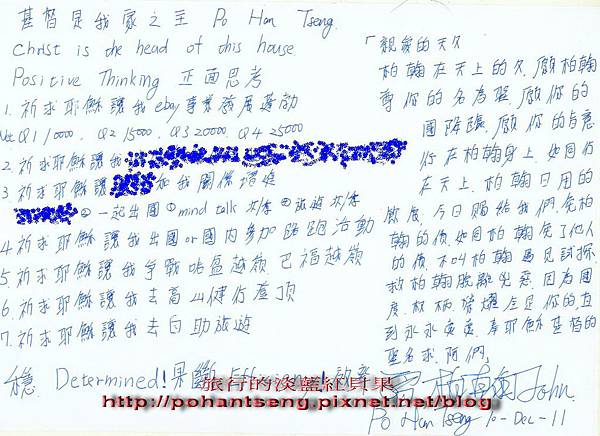 基督是我家之主 Po Han Tseng
Christ is the head of this house
Positive Thinking 正面思考
1. 祈求耶穌讓我 ebay 事業發展蓬勃
Net Q1 10000. Q2 15000. Q3 20000. Q4 25000
2. 祈求耶穌讓我
3 祈求耶穌讓 和我關係增進
一起出國 mind talk 共享 旅遊 共享
4. 祈求耶穌讓我出國 or 國內參加路跑活動
5. 祈求耶穌讓我爭戰 越嶺 巴福越嶺
6. 祈求耶穌讓我去高山健行登頂
7. 祈求耶穌讓我去自助旅遊
穩 Determined! 果斷 Efficiency! 效率
「親愛的天父
柏翰在天上的父,願柏翰
尊你的名為聖,願你的
國降臨,願你的旨意
行在柏翰身上,如同行
在天上,柏翰日用的
飲食,今日賜給我們,免柏
翰的債,如同柏翰免了他人
的債,不叫柏翰遇見試探
救柏翰脫離兇惡,因為國
度,權柄,榮耀全是你的,直
到永永遠遠,奉耶穌基督的
聖名求,阿們」
John
Po Han Tseng 10-Dec-11
旅行的淡藍紅貝果
http://pohantseng.pixnet.net/blog